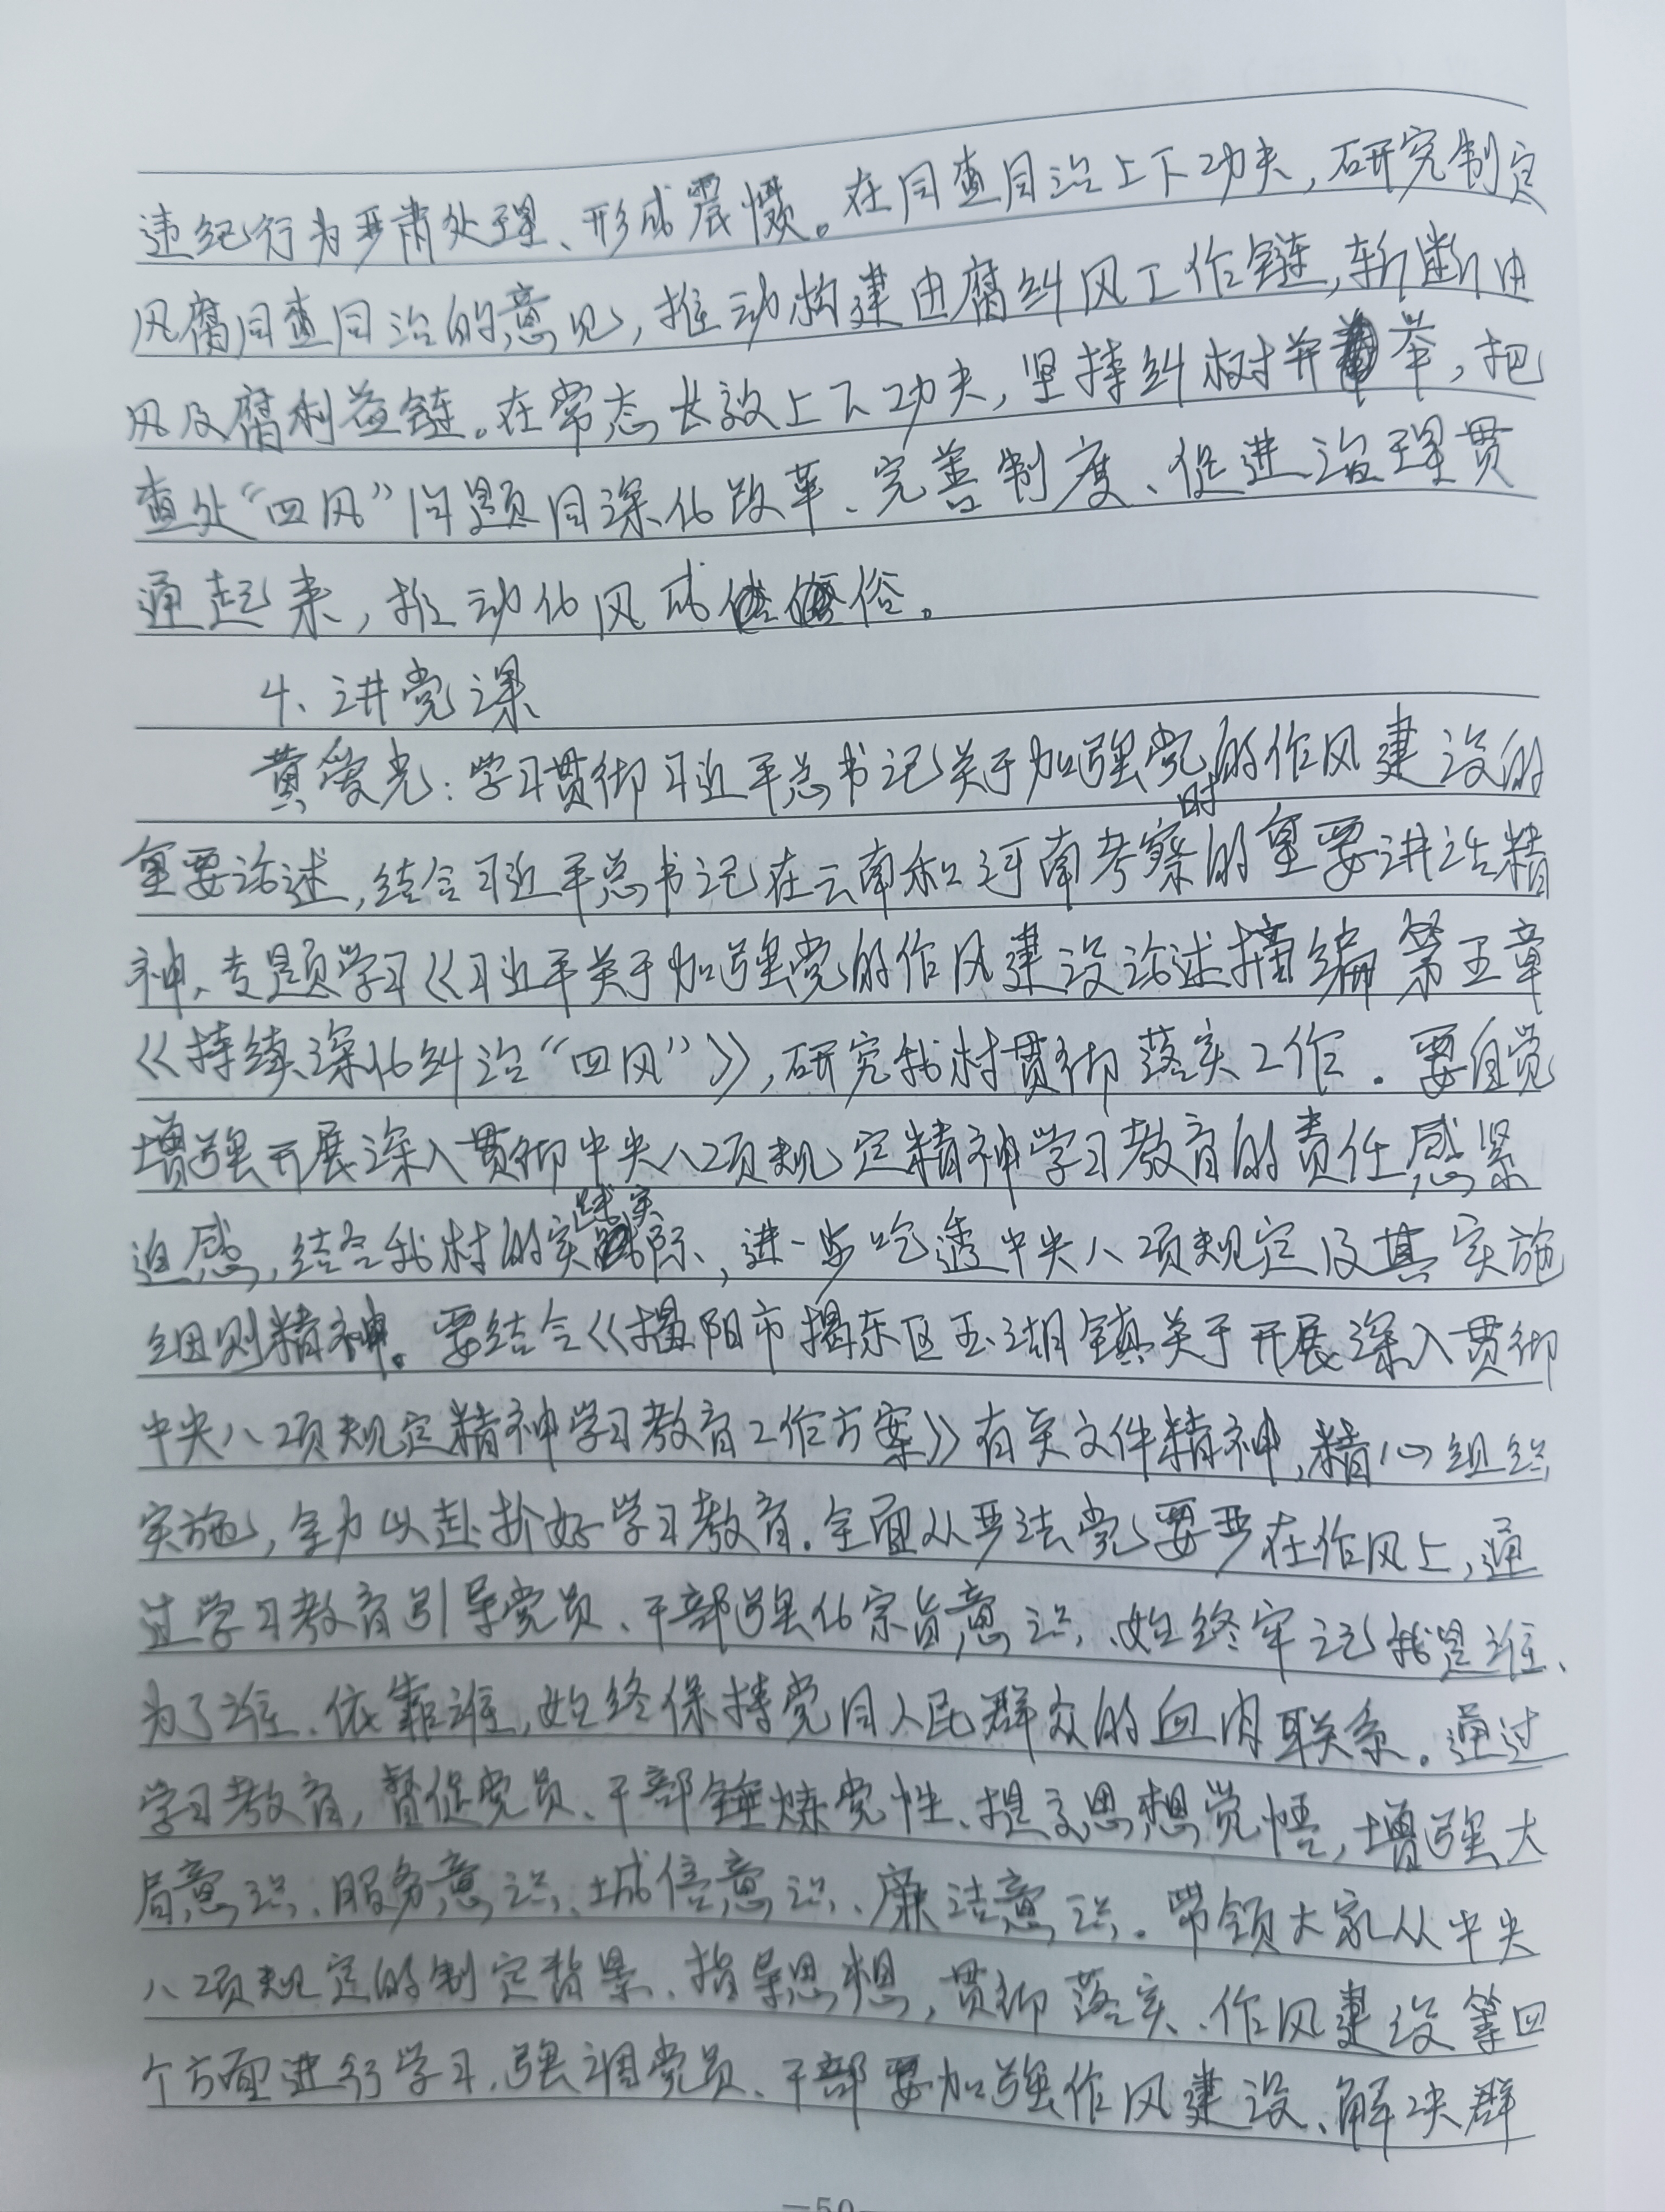 违纪行为严肃处理、形成震慑。在同查同治上下功夫，研究制定
风腐同查同治的意见，推动构建由腐纠风工作链，斩断由
风及腐利益链。在常态长效上下功夫，坚持纠树并举，把
查处“四风”问题同深化改革、完善制度、促进治理贯
通起来，推动化风成俗。
4、讲党课
黄爱光：学习贯彻习近平总书记关于加强党的作风建设的
重要论述，结合习近平总书记在云南和河南考察时的重要讲话精
神、专题学习《习近平关于加强党的作风建设论述摘编第五章
《持续深化纠治“四风”》，研究我村贯彻落实工作。要自觉
增强开展深入贯彻中央八项规定精神学习教育的责任感紧
迫感，结合我村的实际、进一步吃透中央八项规定及其实施
细则精神。要结合《揭阳市揭东区玉湖镇关于开展深入贯彻
中央八项规定精神学习教育工作方案》有关文件精神，精心组织
实施，全力以赴抓好学习教育。全面从严治党要严在作风上，通
过学习教育引导党员、干部强化宗旨意识、始终牢记我是谁、
为了谁、依靠谁，始终保持党同人民群众的血肉联系。通过
学习教育，督促党员、干部锤炼党性、提高思想觉悟，增强大
局意识、服务意识、诚信意识、廉洁意识。带领大家从中央
八项规定的制定背景、指导思想，贯彻落实、作风建设等四
个方面进行学习，强调党员、干部要加强作风建设、解决群
—50—